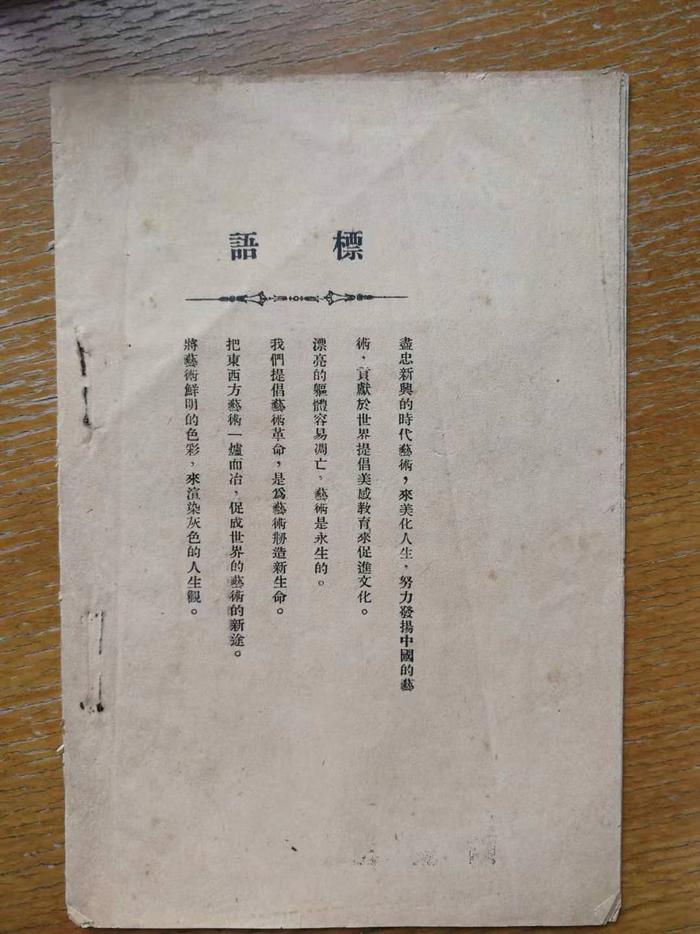 標語
盡忠新興的時代藝術，來美化人生，努力發揚中國的藝
術，貢獻於世界提倡美感教育來促進文化。
漂亮的軀體容易凋亡，藝術是永生的。
我們提倡藝術革命，是爲藝術剏造新生命。
把東西方藝術一爐而冶，促成世界的藝術的新途。
將藝術鮮明的色彩，來渲染灰色的人生觀。